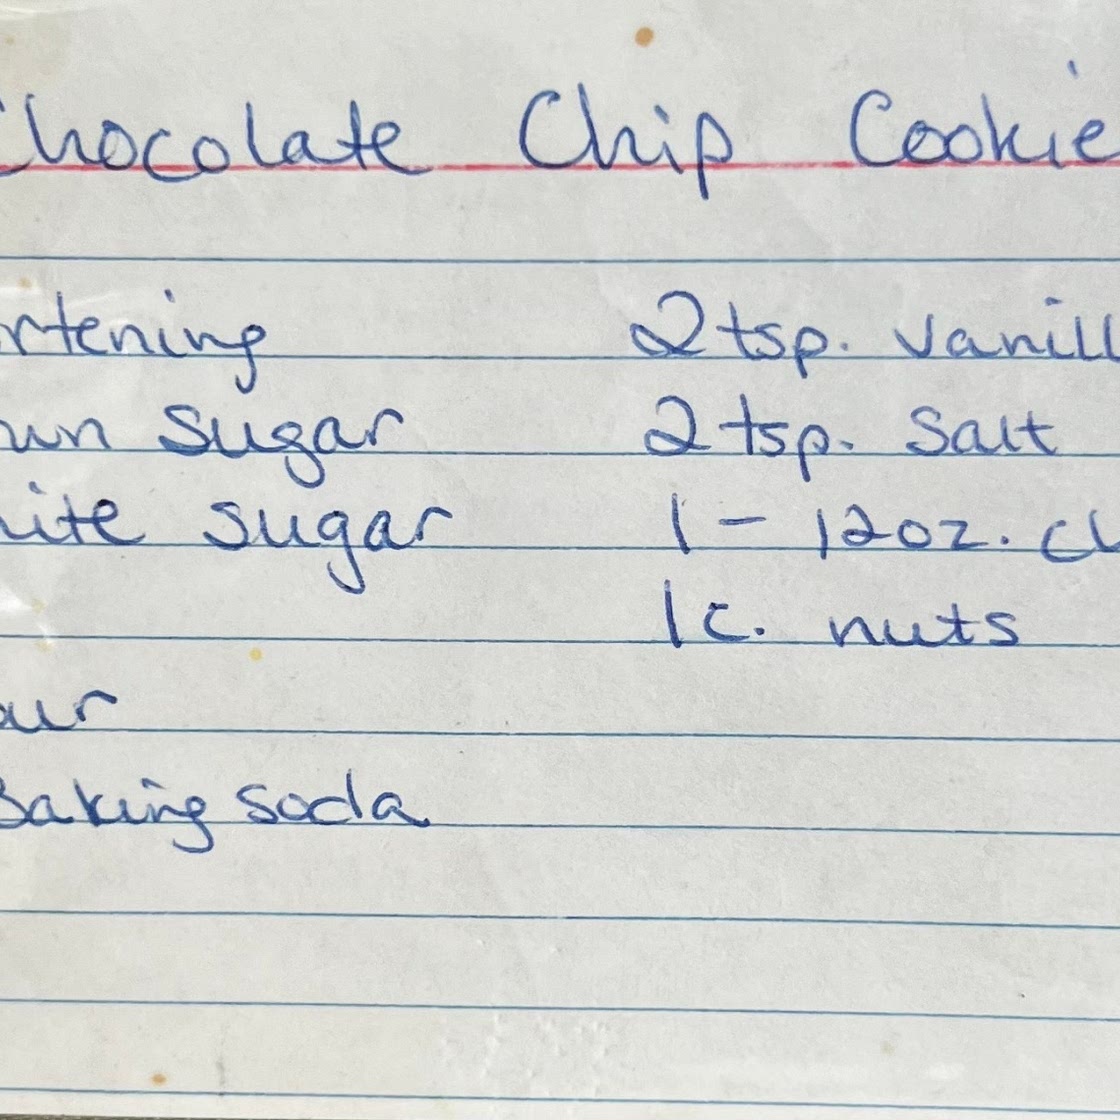 Chocolate Chip Cookie
rtening 2 tsp. Vanill
wn Sugar 2 tsp. Salt
ite sugar 1 - 12oz. ch
1c. nuts
our
Baking soda